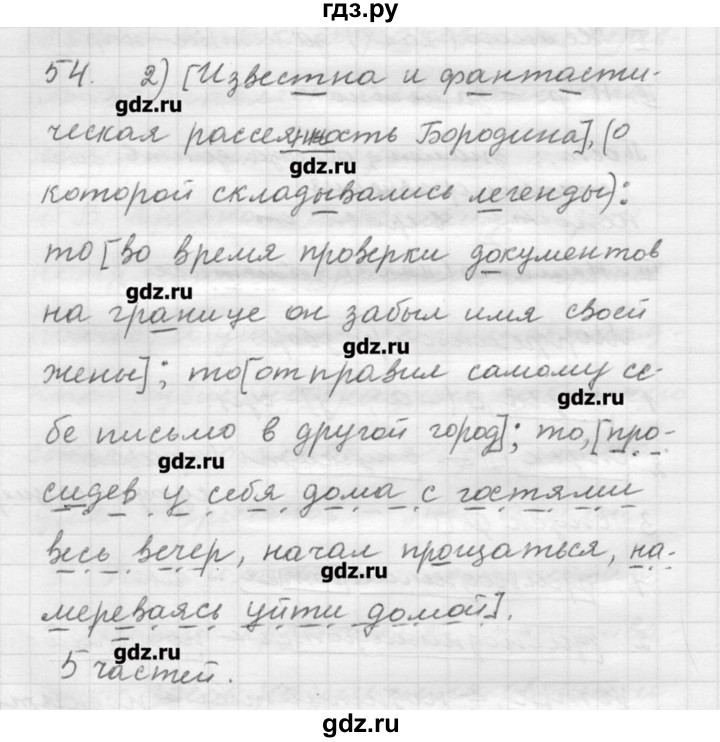 гдз.ру
54. 2) [Известна и фантасти-
gdz.ru
ческая рассеянность Бородина], (о
gdz.ru
которой складывались легенды):
то [во время проверки документов
gdz.ru
на границе он забыл имя своей
gdz.ru
жены]; то [отправил самому се-
gdz.ru
бе письмо в другой город]; то, [про-
gdz.ru
сидев у себя дома с гостями
весь вечер, начал прощаться, на-
gdz.ru
мереваясь уйти домой].
gdz.ru
5 частей.
gdz.ru